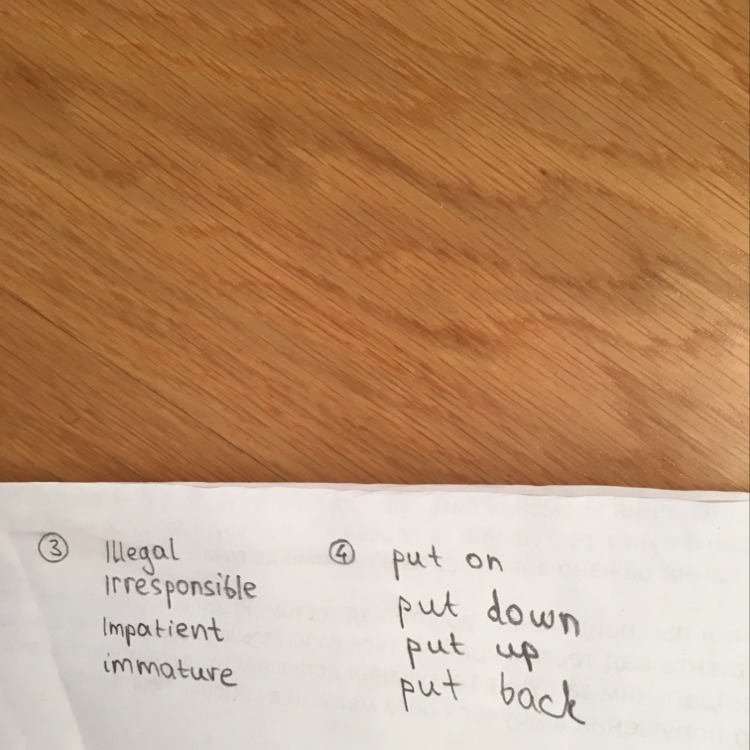 ③ Illegal
Irresponsible
Impatient
immature
④ put on
put down
put up
put back